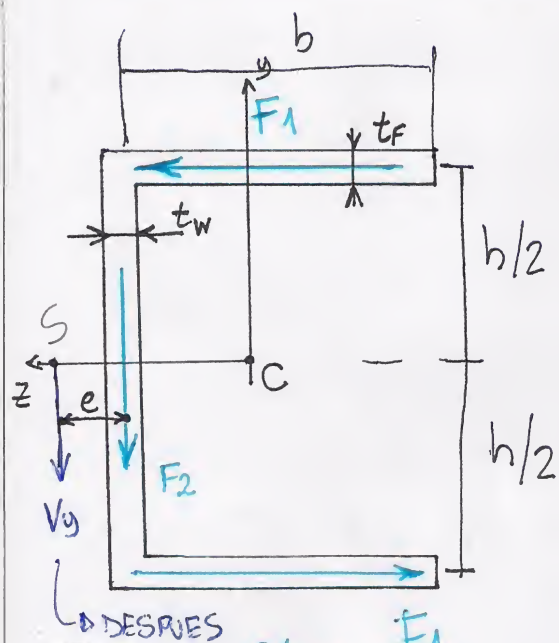 b
y
F1
tF
tw
h/2
S
C
z
e
h/2
F2
Vy
DESPUES
F1